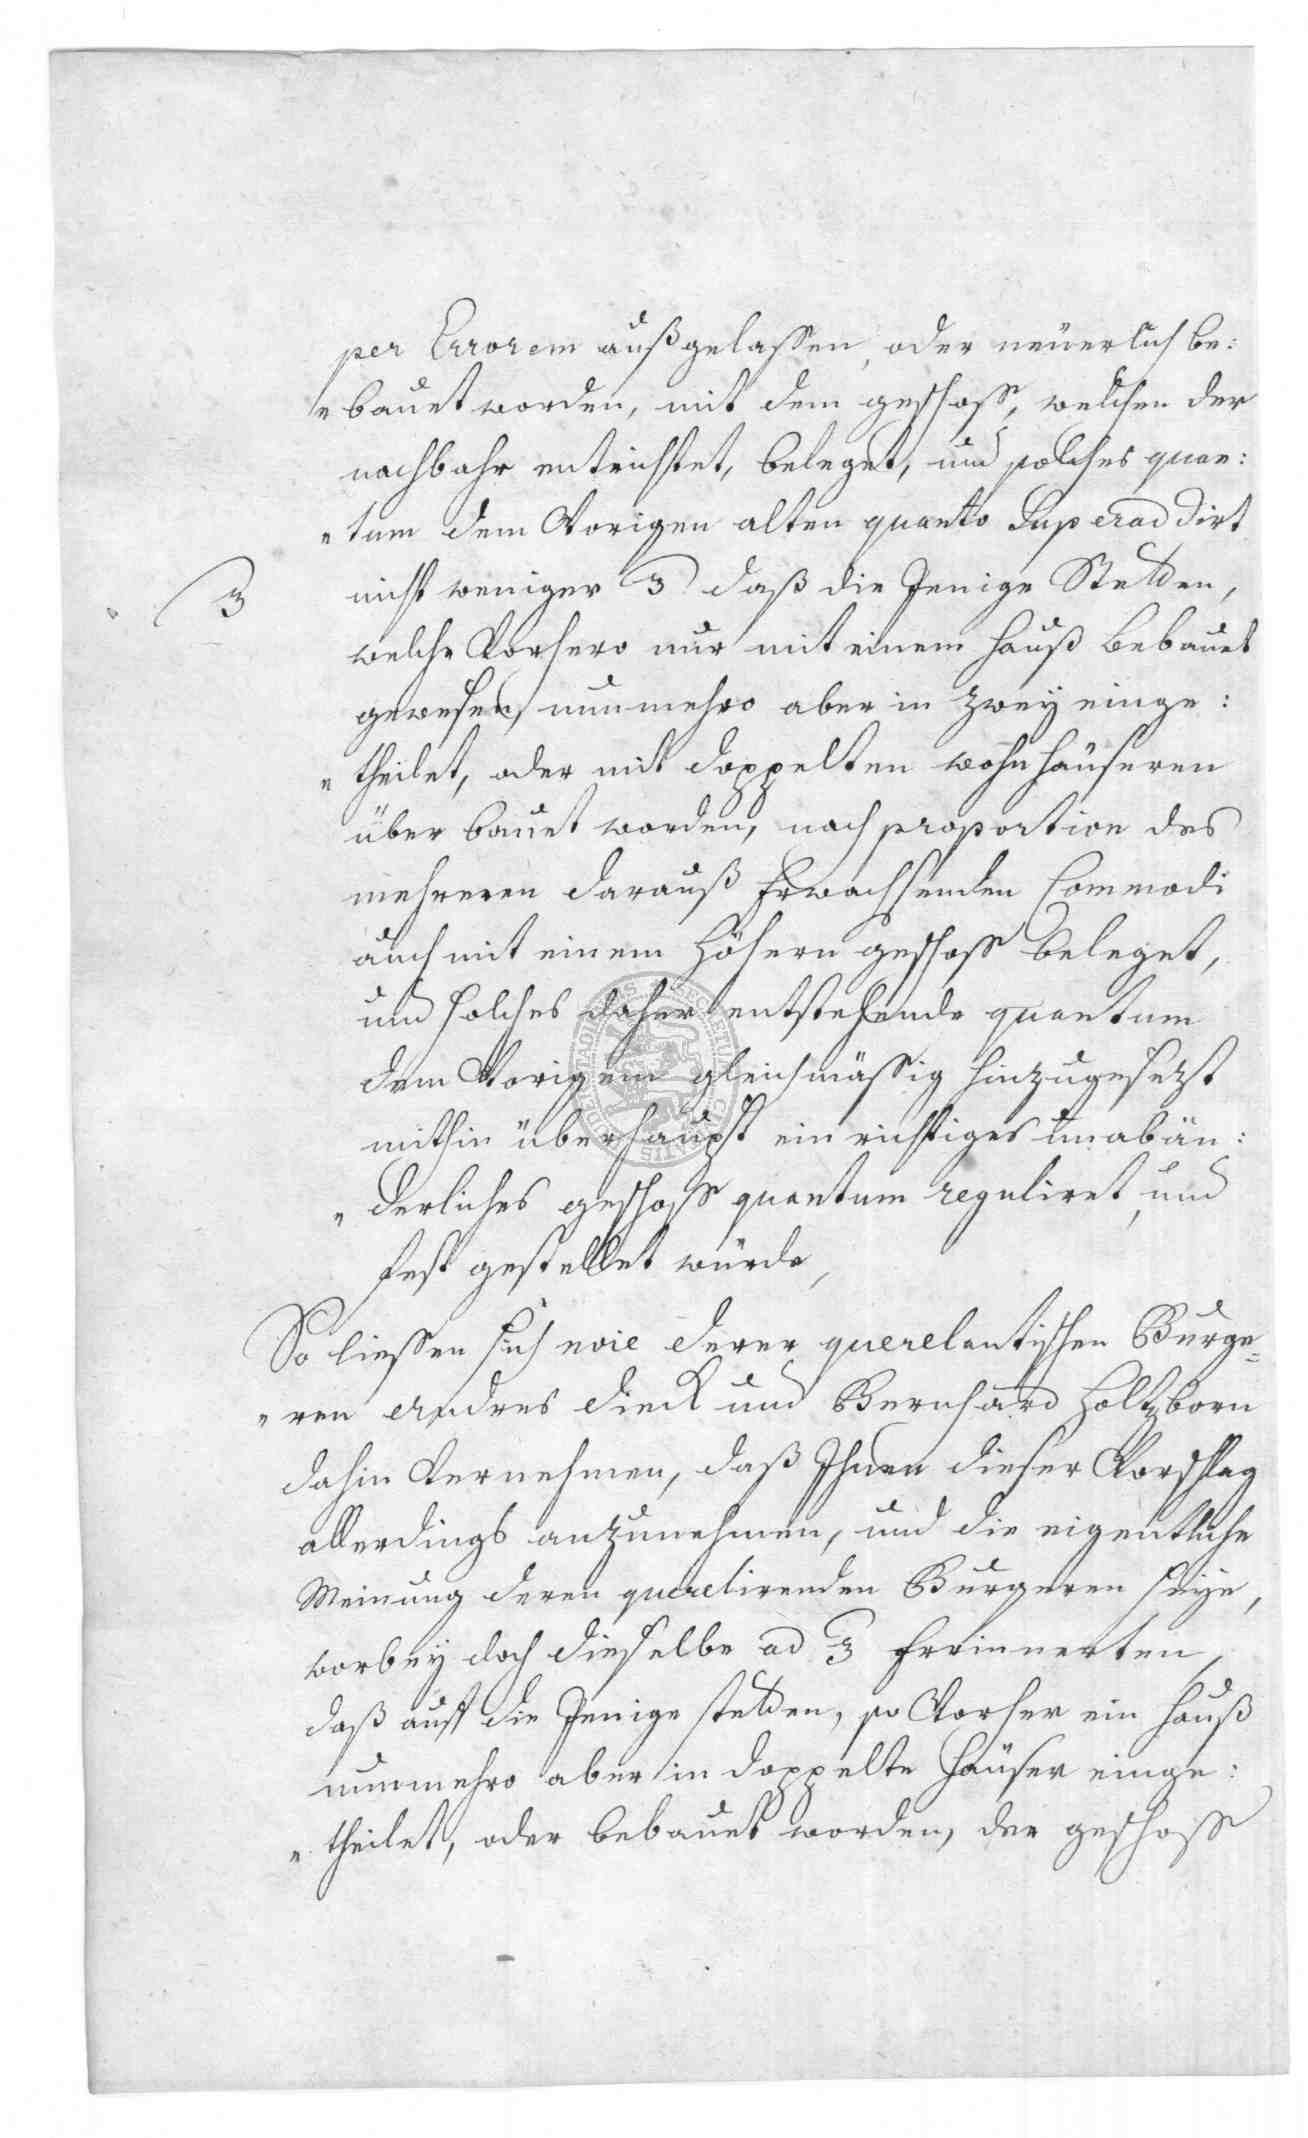 per Errorem außgelassen, oder neüerlich be:
" bauet worden, mit dem geschoss, welchen der
nachbahr entrichtet, beleget, und solches quan:
" tum dem Vorigen alten quanto Superaddirt
3 nicht weniger 3 daß die Jenige Stetten,
welche Vorhero nur mit einem Hauß Bebauet
gewesen, nunmehro aber in zwey einge:
" theilet, oder mit doppelten wohnhäuseren
über bauet worden, nach proportion des
mehreren darauß Erwachsenden Commodi
auch mit einem Höhern geschoss beleget,
und solches daher entstehende quantum
dem Vorigem gleichmässig hinzugesetzt
mithin überhaupt ein richtiges unabän:
" derliches geschoss quantum reguliret, und
fest gestellet würde,
So liessen sich noie derer querelantischen Burge=
" ren Andres Dieck und Bernhard Holtzborn
dahin Vernehmen, daß Ihnen dieser Vorschlag
allerdings anzunehmen, und die eigentliche
Meinung deren querelirenden Burgeren seye,
worbey doch dieselbe ad 3 Erinnerten,
daß auff die Jenige stetten, so Vorher ein Hauß
nunmehro aber in doppelte Häuser einge:
" theilet, oder bebauet worden, der geschoss